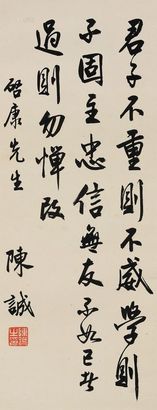 君子不重則不威學則
不固主忠信無友不如己者
過則勿憚改
康先生
陳誠